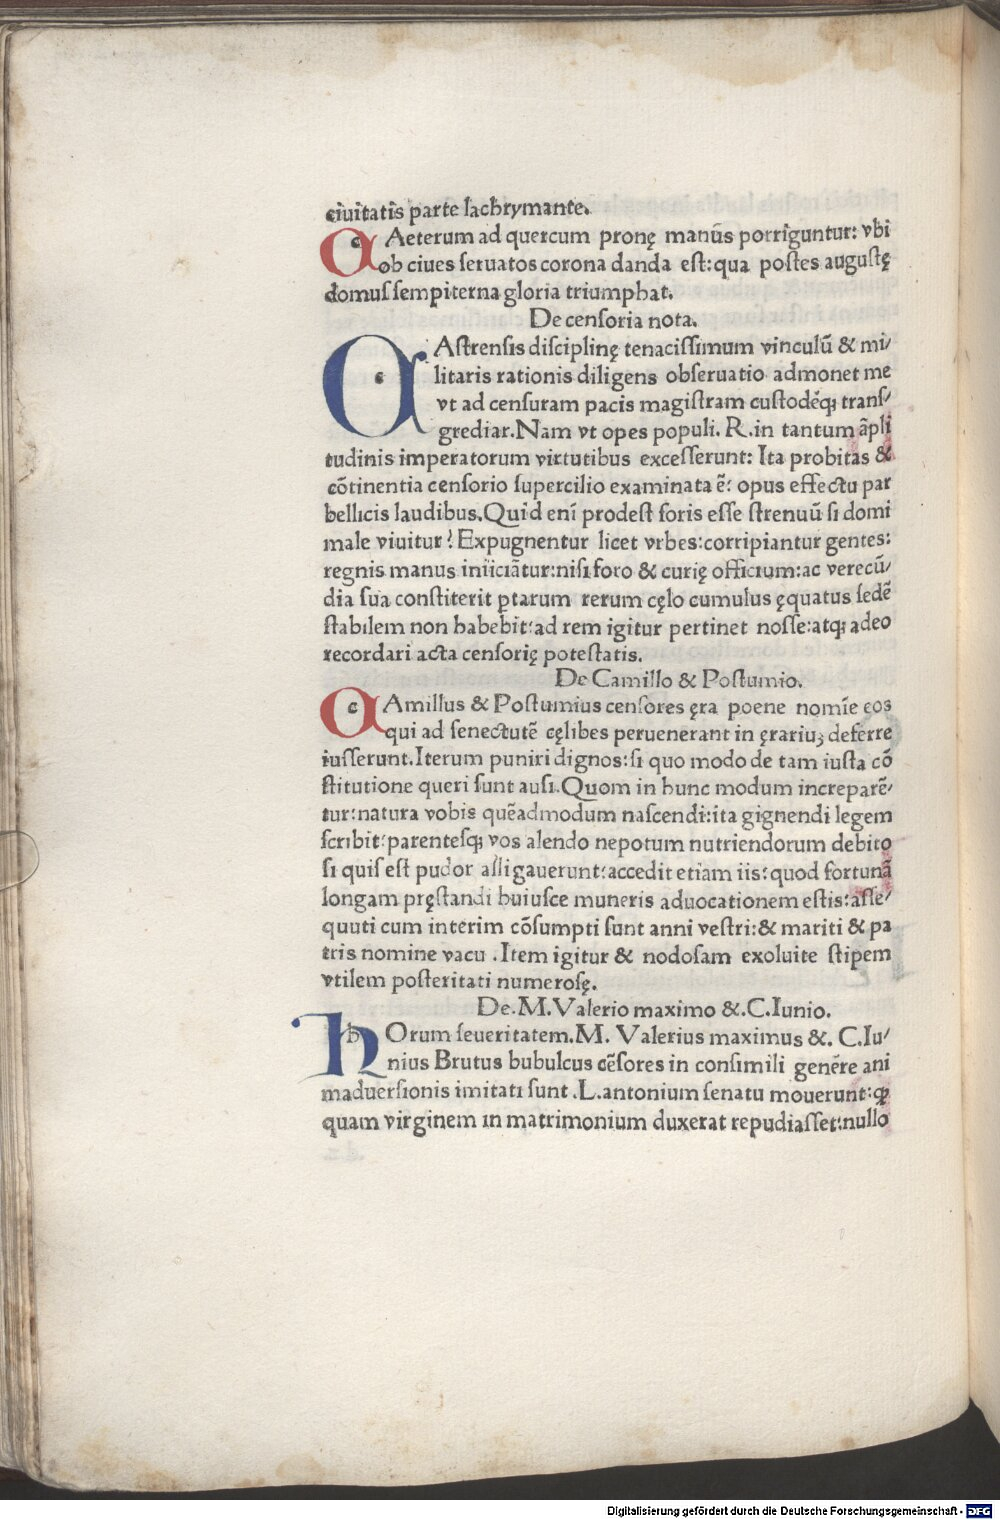 ciuitatis parte lachrymante.
CAeterum ad quercum pronę manus porriguntur: vbi
ob ciues seruatos corona danda est: qua postes augustę
domus sempiterna gloria triumphat.
De censoria nota.
CAstrensis disciplinę tenacissimum vinculū & mi/
litaris rationis diligens obseruatio admonet me
vt ad censuram pacis magistram custodēq; trans/
grediar. Nam vt opes populi. R. in tantum āpli
tudinis imperatorum virtutibus excesserunt: Ita probitas &
cōtinentia censorio supercilio examinata ē: opus effectu par
bellicis laudibus. Quid enī prodest foris esse strenuū si domi
male viuitur? Expugnentur licet vrbes: corripiantur gentes:
regnis manus iniiciātur: nisi foro & curię officium: ac verecū/
dia sua constiterit ꝑtarum rerum cęlo cumulus ęquatus sedē
stabilem non habebit: ad rem igitur pertinet nosse: atq; adeo
recordari acta censorię potestatis.
De Camillo & Postumio.
CAmillus & Postumius censores ęra poene nomīe eos
qui ad senectutē cęlibes peruenerant in ęrariuꝫ deferre
iusserunt. Iterum puniri dignos: si quo modo de tam iusta cō
stitutione queri sunt ausi. Quom in hunc modum increparē/
tur: natura vobis quēadmodum nascendi: ita gignendi legem
scribit: parentesq; vos alendo nepotum nutriendorum debito
si quis est pudor alligauerunt: accedit etiam iis: quod fortunā
longam pręstandi huiusce muneris aduocationem estis: asse/
quuti cum interim cōsumpti sunt anni vestri: & mariti & pa
tris nomine vacu . Item igitur & nodosam exoluite stipem
vtilem posteritati numerosę.
De. M. Valerio maximo &. C. Iunio.
hOrum seueritatem. M. Valerius maximus &. C. Iu/
nius Brutus bubulcus cēsores in consimili genēre ani
maduersionis imitati sunt . L. antonium senatu mouerunt: ꝙ
quam virginem in matrimonium duxerat repudiasset: nullo
Digitalisierung gefördert durch die Deutsche Forschungsgemeinschaft - DFG